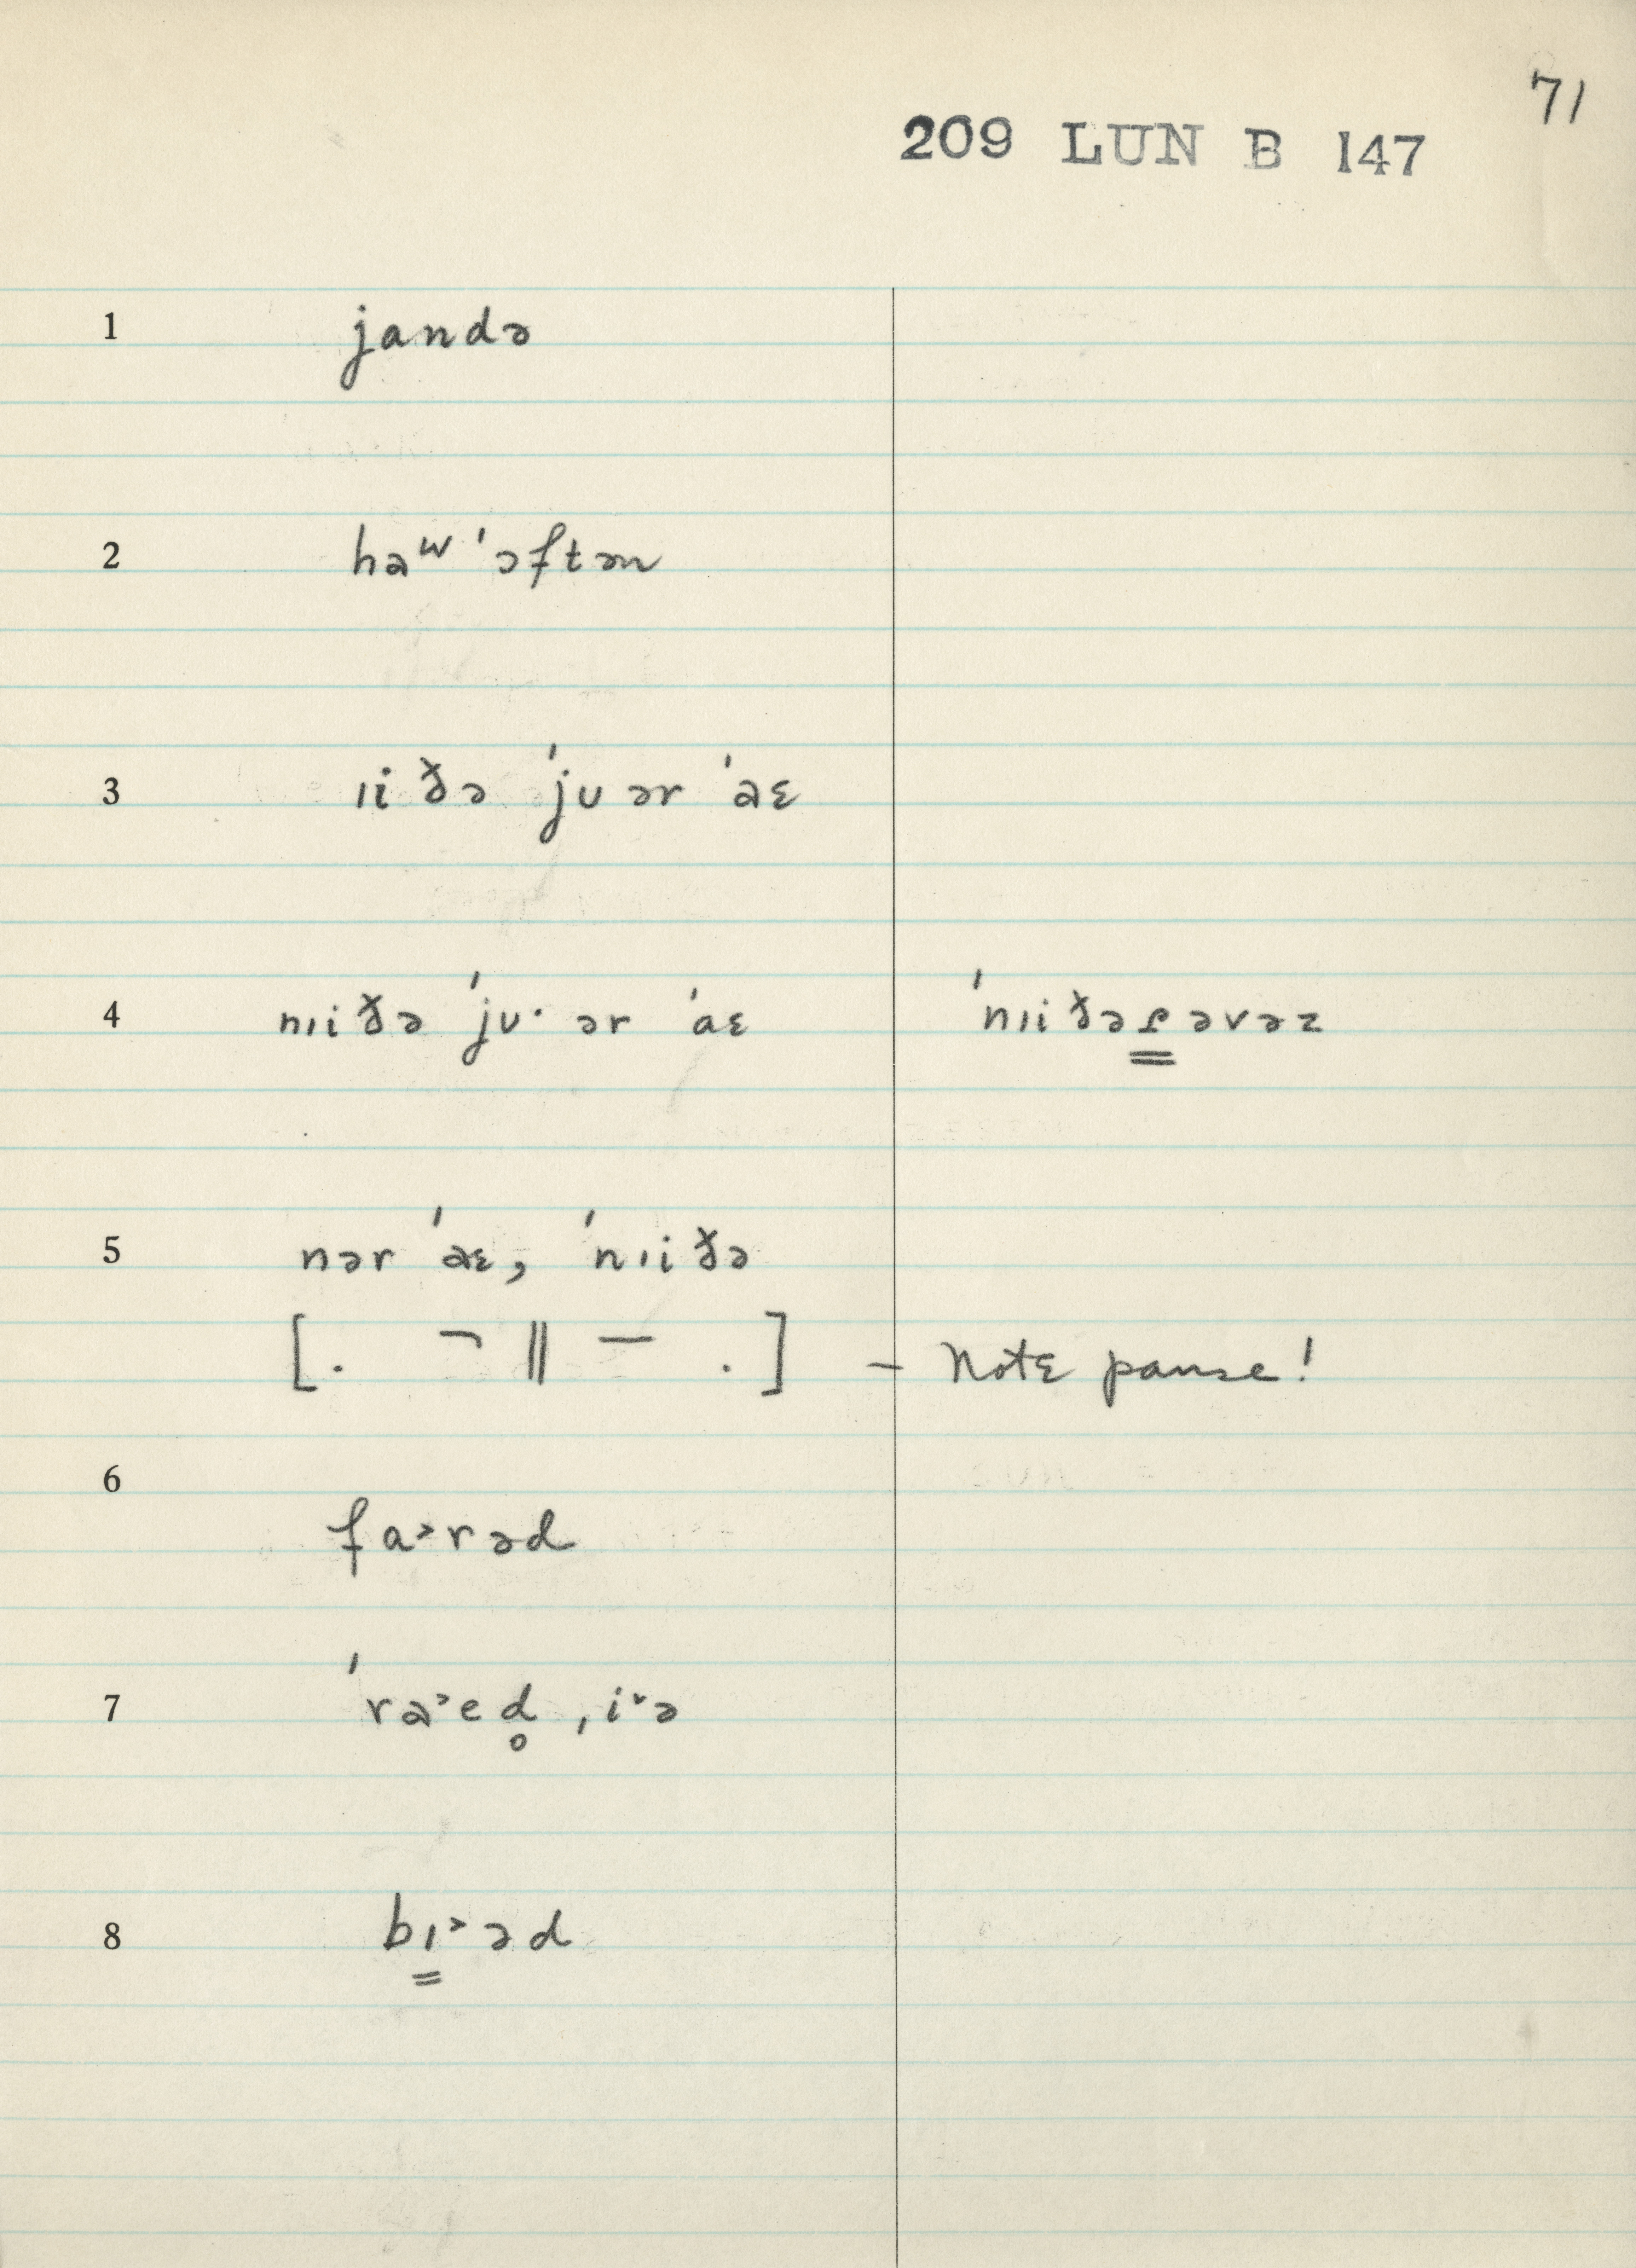 71
209 LUN B 147
1 jandə
2 haʷ ˈɔftən
3 ɪi ðə ˈjʊ ər ˈaɛ
4 nɪi ðə ˈjʊ· ər ˈaɛ ˈnɪi ðə ɾ əvəz
5 nər ˈaɛ, ˈnɪi ðə
[. ¬ ‖ — .] – Note pause!
6 fa˃rəd
7 ˈra˃ed̥ ˌi˅ə
8 bɪ˃əd